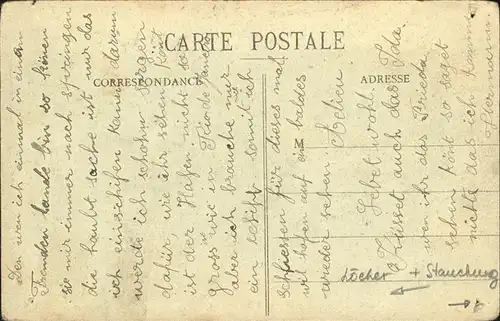 CARTE POSTALE
CORRESPONDANCE
ADRESSE
Den wen ich einmal in einem
Fremden lande bin so könen
sie mir immer nach springen
die haubt sache ist nur das
ich einschifen kann darum
werde ich schohn sorgen
dafür, wie ihr sehen könt
ist der Hafen nicht so
gross wie in Rio de Janeiro
aber ich brauche nur
ein schiff somit ich
schliessen für dieses mal
wil hofen auf ein baldes
wieder sehen
Lebet wohl.
Küsset auch das Ida.
wen ihr das Frieda
sehen könt so saget
nicht das ich komm
Hermann
Löcher + Stauchung